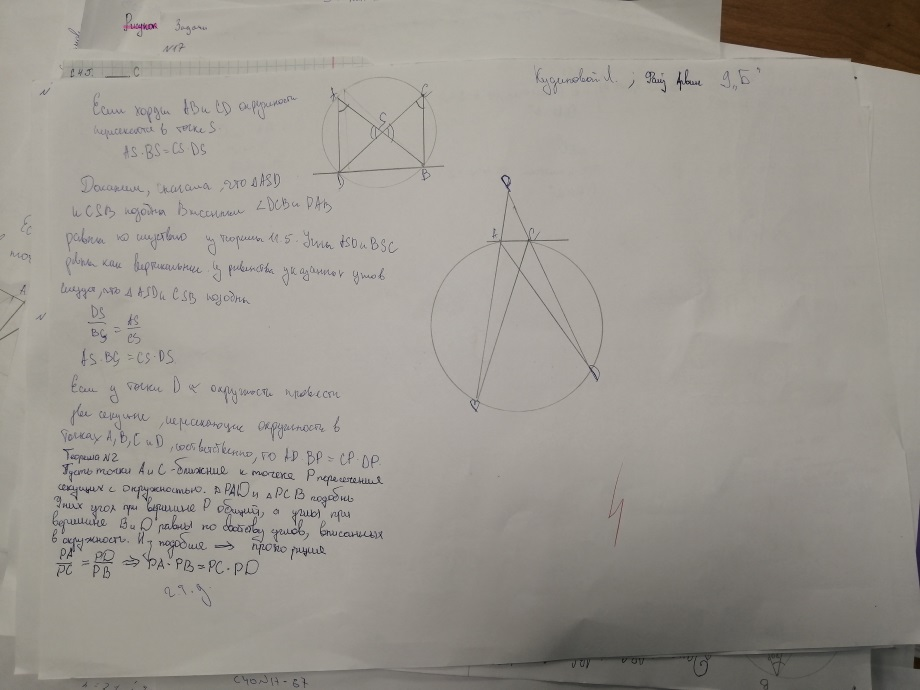 Рисунок Задачи
N17
С
Кудиновой Л. ; 9 „Б"
Если хорды AB и CD окружности
пересекаются в точке S.
AS·BS=CS·DS
Докажем, сначала, что △ASD
и CSB подобны Вписанные ∠DCB и DAB
равны по следствию из теоремы 11.5. Углы ASD и BSC
равны как вертикальные. Из равенства указанных углов
следует, что △ ASD и CSB подобны
DS/BS = AS/CS
AS·BS = CS·DS
Если у точки к окружности провести
две секущие, пересекающие окружность в
точках A, B, C и D, соответственно, то AP BP = CP·DP.
Теорема N2
Пусть точки A и C - ближние к точке P пересечения
секущих с окружностью. △PAD и △PCB подобны
У них угол при вершине P общий, а углы при
вершине B и D равны по свойству углов, вписанных
в окружность. Из подобия ⇒ пропорция
PA/PC = PD/PB ⇒ PA·PB=PC·PD
ч.т.д
A
C
S
D
B
P
A
C
B
D